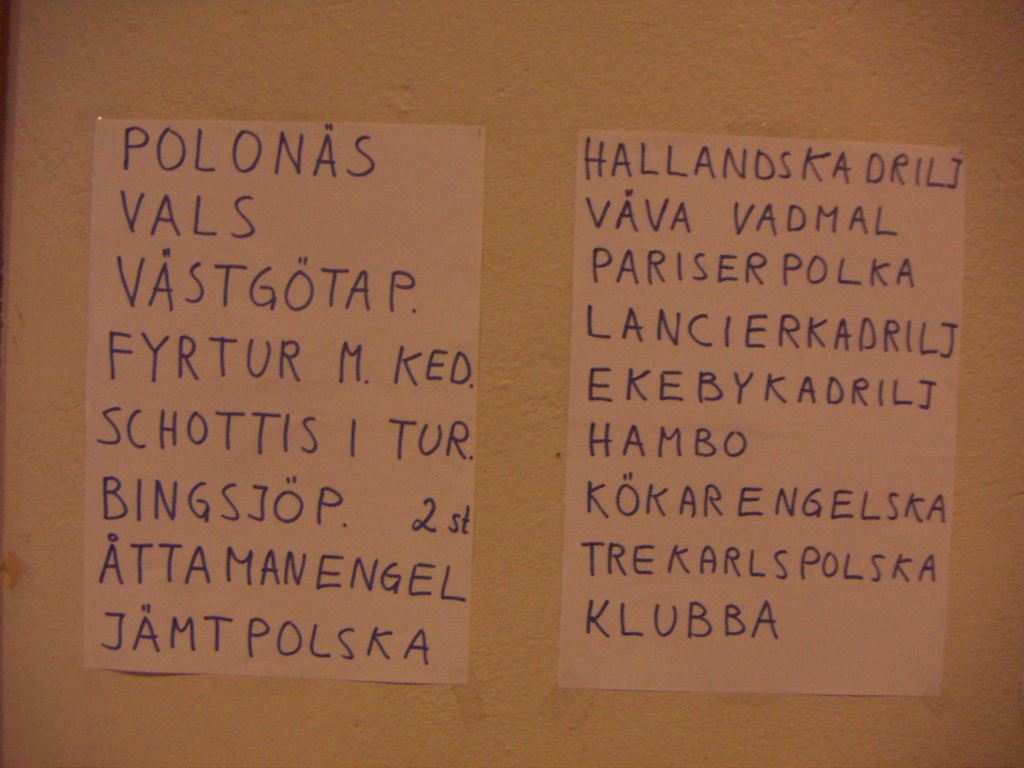 POLONÄS
VALS
VÄSTGÖTA P.
FYRTUR M. KED.
SCHOTTIS I TUR.
BINGSJÖP. 2 st
ÅTTAMANENGEL
JÄMTPOLSKA
HALLANDSKADRILJ
VÄVA VADMAL
PARISERPOLKA
LANCIERKADRILJ
EKEBYKADRILJ
HAMBO
KÖKARENGELSKA
TREKARLSPOLSKA
KLUBBA